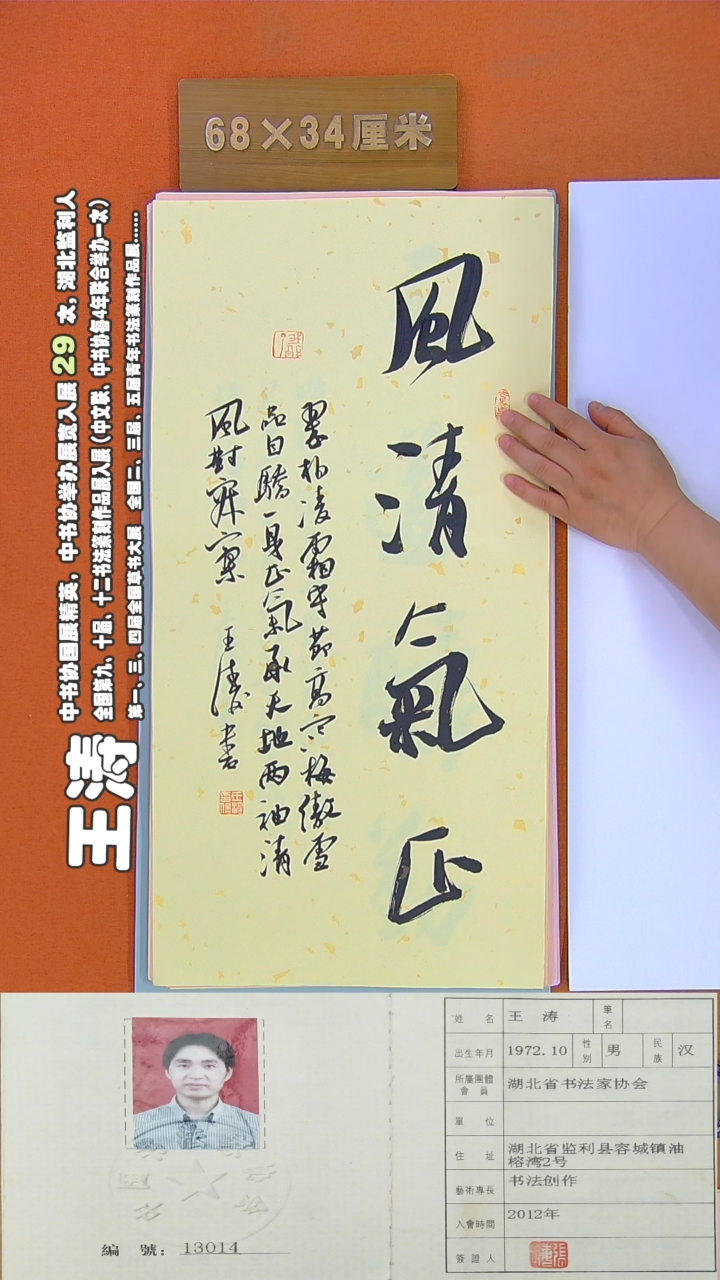 68×34厘米
王涛
中书协国展精英，中书协举办展赛入展 29 次，湖北监利人
全国第九、十届、十二书法篆刻作品展入展（中文联、中书协督4年联合举办一次）
第一、三、四届全国草书大展 全国二、三届、五届青年书法篆刻作品展......
風清氣正
翠柏凌霜守節高寒梅傲雪
品自驕一身正氣承天地兩袖清
風對寂寞 王濤書
編 號：13014
姓 名 王 涛 筆名
出生年月 1972.10 性別 男 民族 汉
所屬團體會員 湖北省书法家协会
單 位
住 址 湖北省监利县容城镇油榕湾2号
藝術專長 书法创作
入會時間 2012年
簽證人